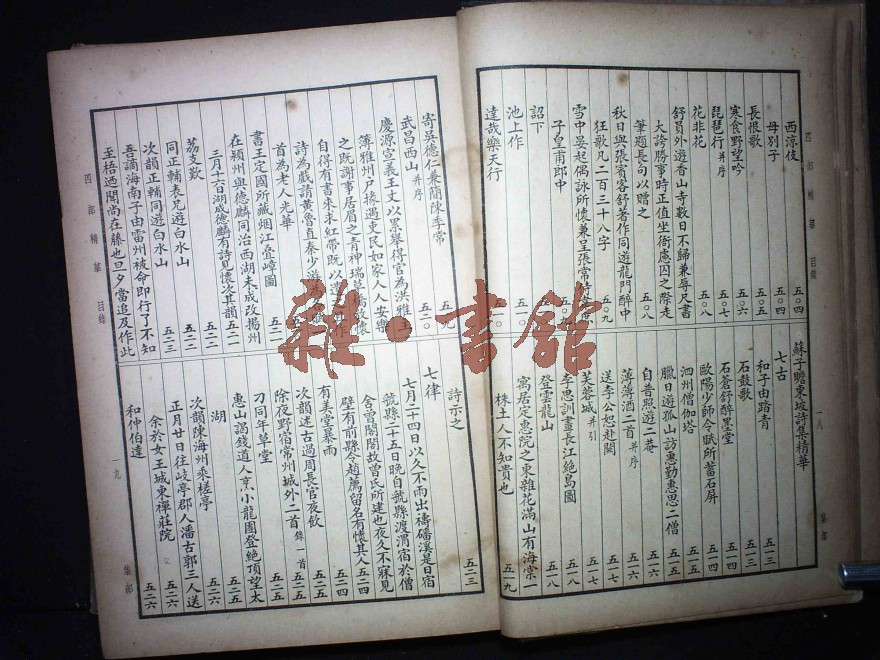 四部精華 目錄
西涼伎 五〇四
母別子 五〇四
長恨歌 五〇五
寒食野望吟 五〇六
琵琶行 并序 五〇七
花非花 五〇八
舒員外遊香山寺數日不歸兼辱尺書
大誇勝事時正值坐衙慮囚之際走
筆題長句以贈之 五〇八
秋日與張賓客舒著作同遊龍門醉中
狂歌凡二百三十八字 五〇九
雪中晏起偶詠所懷兼呈張常侍
子皇甫郎中
詔下 五一〇
池上作 五一一
達哉樂天行
蘇子瞻東坡詩集精華
七古
和子由踏青 五一三
石鼓歌 五一三
石蒼舒醉墨堂 五一四
歐陽少師令賦所蓄石屏 五一四
泗州僧伽塔 五一五
臘日遊孤山訪惠勤惠思二僧 五一五
自普照遊二菴 五一六
薄薄酒二首 并序 五一六
送李公恕赴闕 五一七
芙蓉城 并引 五一七
李思訓畫長江絕島圖 五一八
登雲龍山 五一八
寓居定惠院之東雜花滿山有海棠一
株土人不知貴也 五一九
一八
集部
寄吳德仁兼簡陳季常 五一九
武昌西山 并序 五二〇
慶源宣義王丈以累舉得官為洪雅主
簿雅州戶掾遇吏民如家人人安樂
之既謝事居眉之青神瑞草橋放懷
自得有書來求紅帶既以遺
詩為戲請黃魯直秦少游
首為老人光華 五二一
書王定國所藏烟江疊嶂圖 五二一
在潁州與德麟同治西湖未成改揚州
三月十六日湖成德麟有詩見懷次其韻 五二一
荔支歎 五二二
同正輔表兄遊白水山 五二二
次韻正輔同遊白水山 五二三
吾謫海南子由雷州被命即行了不知
至梧迺聞尚在藤也旦夕當追及作此
詩示之 五二三
七律
七月二十四日以久不雨出禱磻溪是日宿
虢縣二十五日晚自虢縣渡渭宿於僧
舍曾閣閣故曾氏所建也夜久不寐見
壁有前縣令趙薦留名有懷其人 五二四
有美堂暴雨 五二四
次韻述古過周長官夜飲 五二五
除夜野宿常州城外二首 錄一首 五二五
刁同年草堂 五二五
惠山謁錢道人烹小龍團登絕頂望太
湖 五二五
次韻陳海州乘槎亭 五二六
正月廿日往岐亭郡人潘古郭三人送
余於女王城東禪莊院 五二六
和仲伯達 五二六
四部精華 目錄
一九
集部
雜·書館